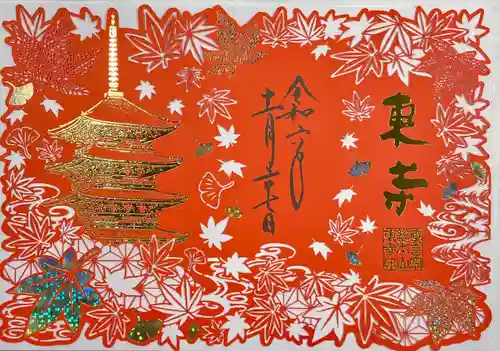 東寺
令和六年
十一月二十七日